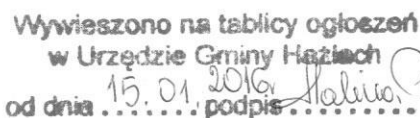 Wywieszono na tablicy ogłoszeń
w Urzędzie Gminy Hażlach
od dnia 15.01.2016r. podpis Halina